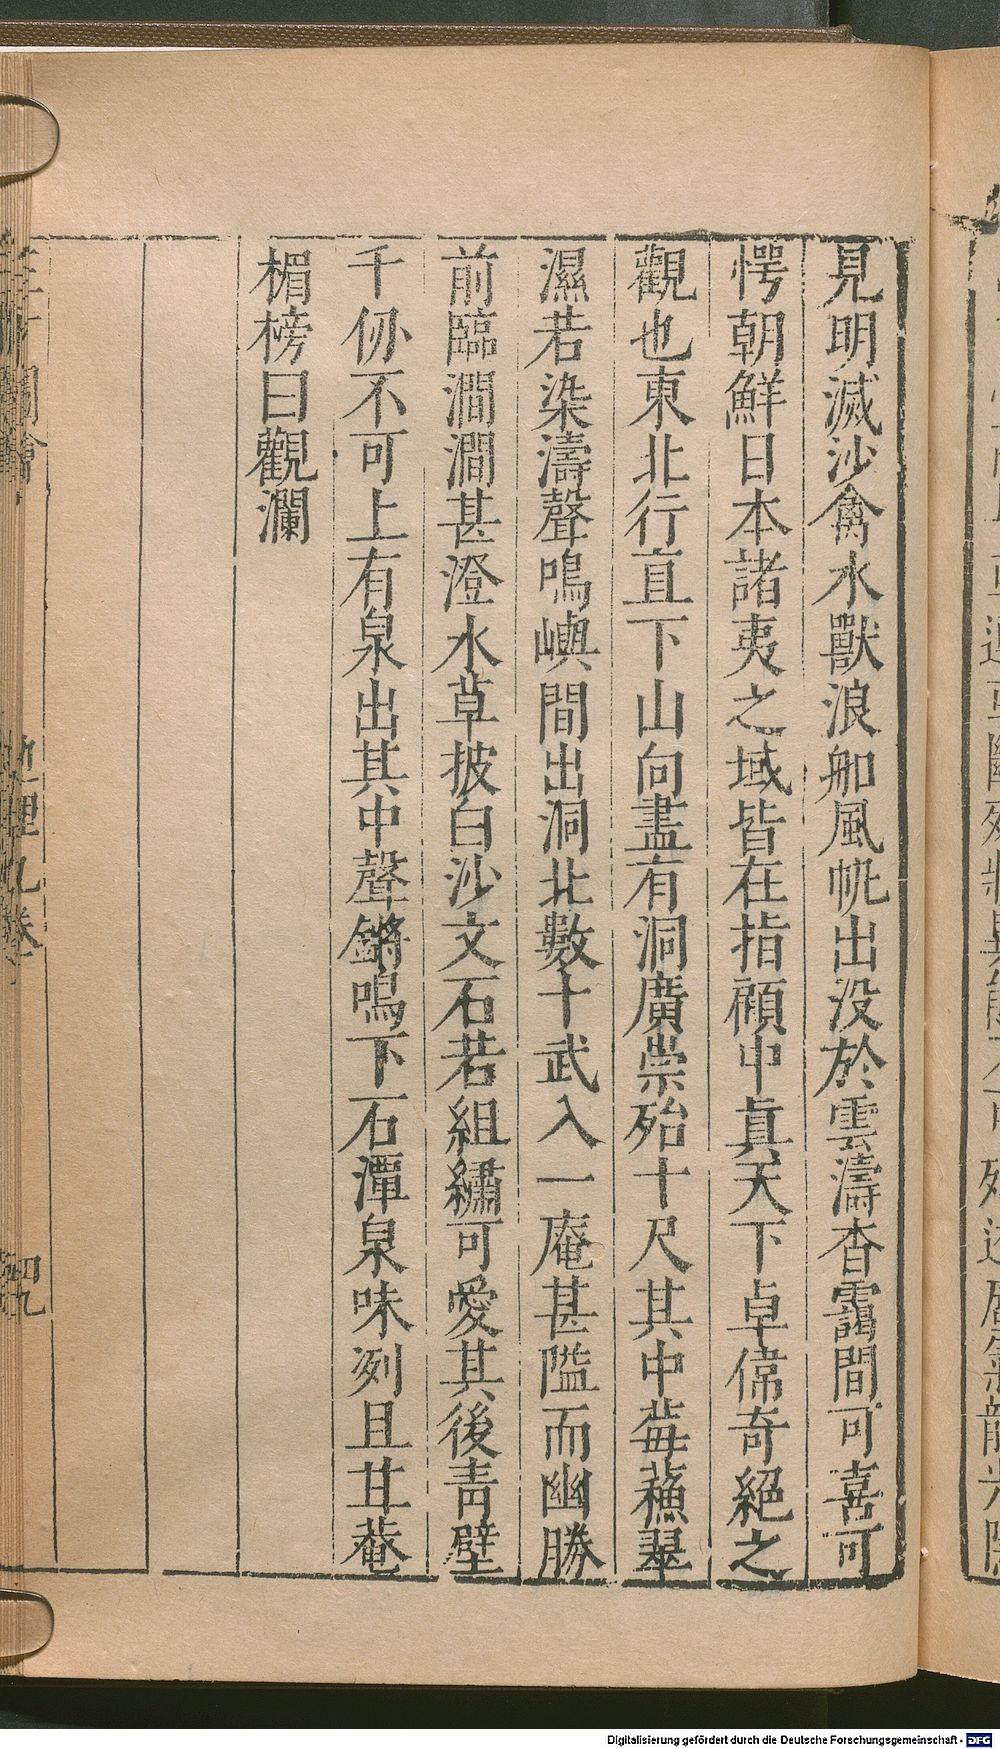 見明滅沙禽水獸浪舶風帆出没於雲濤杳靄間可喜可
愕朝鮮日本諸夷之域皆在指顧中真天下卓偉奇絕之
觀也東北行直下山向盡有洞廣崇殆十尺其中莓蘚翠
濕若染濤聲鳴嶼間出洞北數十武入一庵甚隘而幽勝
前臨澗澗甚澄水草披白沙文石若組繡可愛其後青壁
千仞不可上有泉出其中聲鏘鳴下石潭泉味冽且甘菴
楣榜曰觀瀾
地理九卷
四九
Digitalisierung gefördert durch die Deutsche Forschungsgemeinschaft - DFG